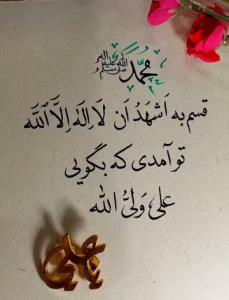 محمد صلی الله علیه وسلم
قسم به اَشهَدُ اَن لَا اِلهَ اِلَّا اللّٰه
تو آمدی که بگویی
علی وَلیُّ اللّه
علی